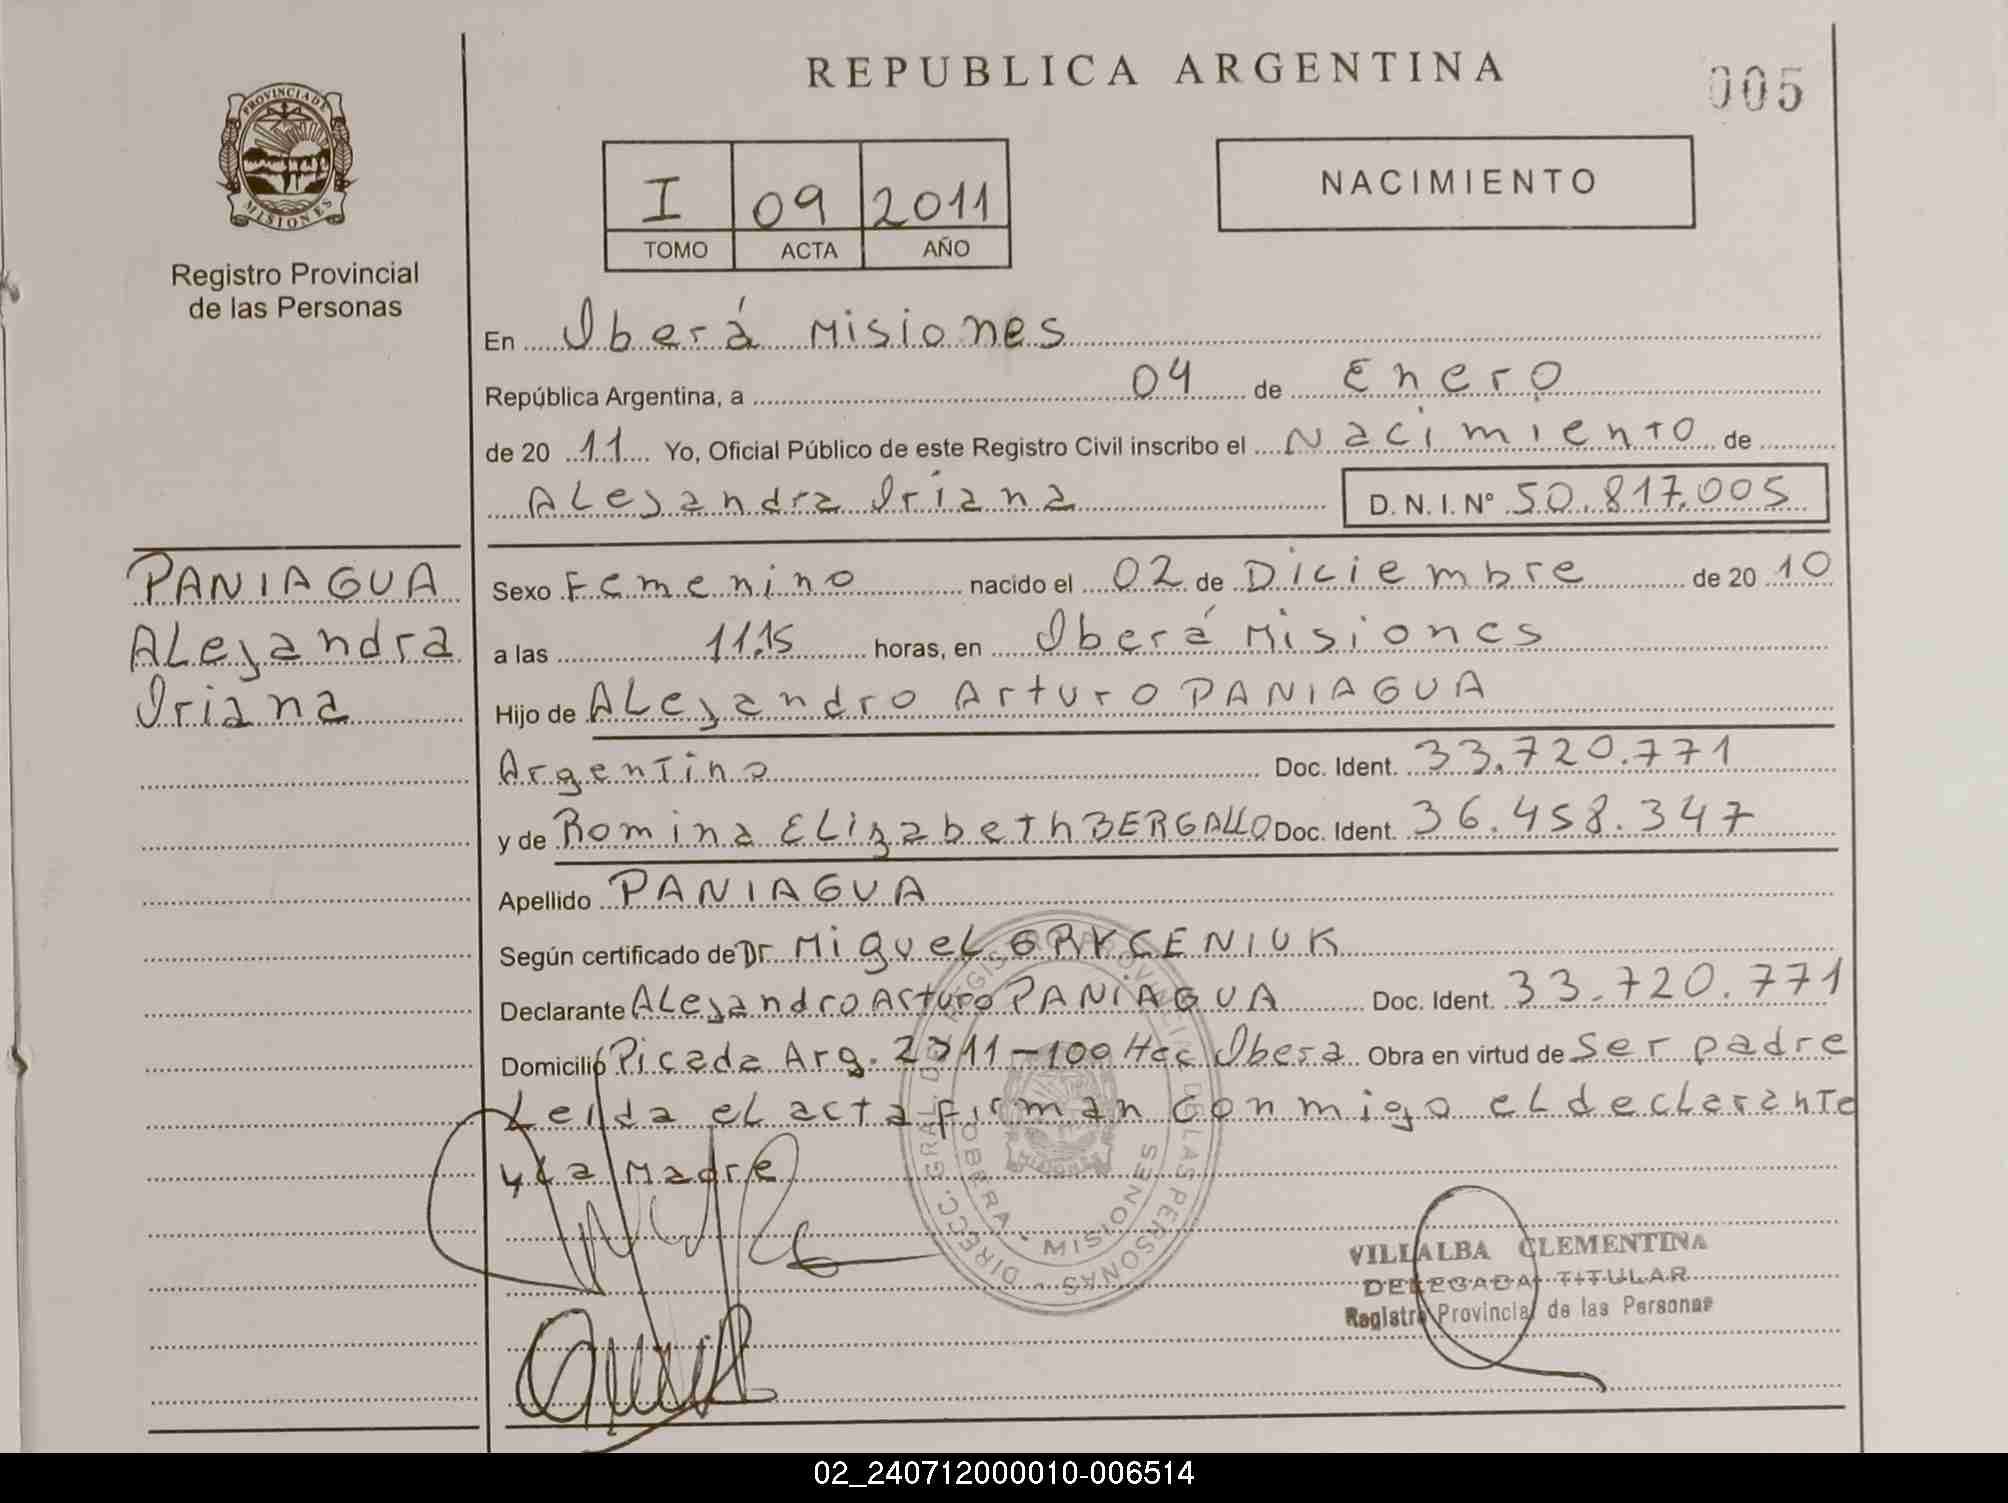 REPUBLICA ARGENTINA
005
PROVINCIA DE
MISIONES
Registro Provincial
de las Personas
I 09 2011
TOMO ACTA AÑO
NACIMIENTO
En Iberá Misiones
República Argentina, a 04 de Enero
de 20 11 Yo, Oficial Público de este Registro Civil inscribo el Nacimiento de
Alejandra Iriana D. N. I. Nº 50.817.005
PANIAGUA
Alejandra
Iriana
Sexo Femenino nacido el 02 de Diciembre de 20 10
a las 11.15 horas, en Iberá Misiones
Hijo de Alejandro Arturo PANIAGUA
Argentino Doc. Ident. 33.720.771
y de Romina Elizabeth BERGALLO Doc. Ident. 36.458.347
Apellido PANIAGUA
Según certificado de Dr Miguel GRYCENIUK
Declarante Alejandro Arturo PANIAGUA Doc. Ident. 33.720.771
Domicilio Picada Arg. 2711-100 Hec Ibera Obra en virtud de Ser padre
Leida el acta firman conmigo el declarante
y La Madre
DIRECC. GRAL. DEL REGISTRO PROVINCIAL DE LAS PERSONAS
OBERA - MISIONES
VILLALBA CLEMENTINA
DELEGADA TITULAR
Registro Provincial de las Personas
02_240712000010-006514